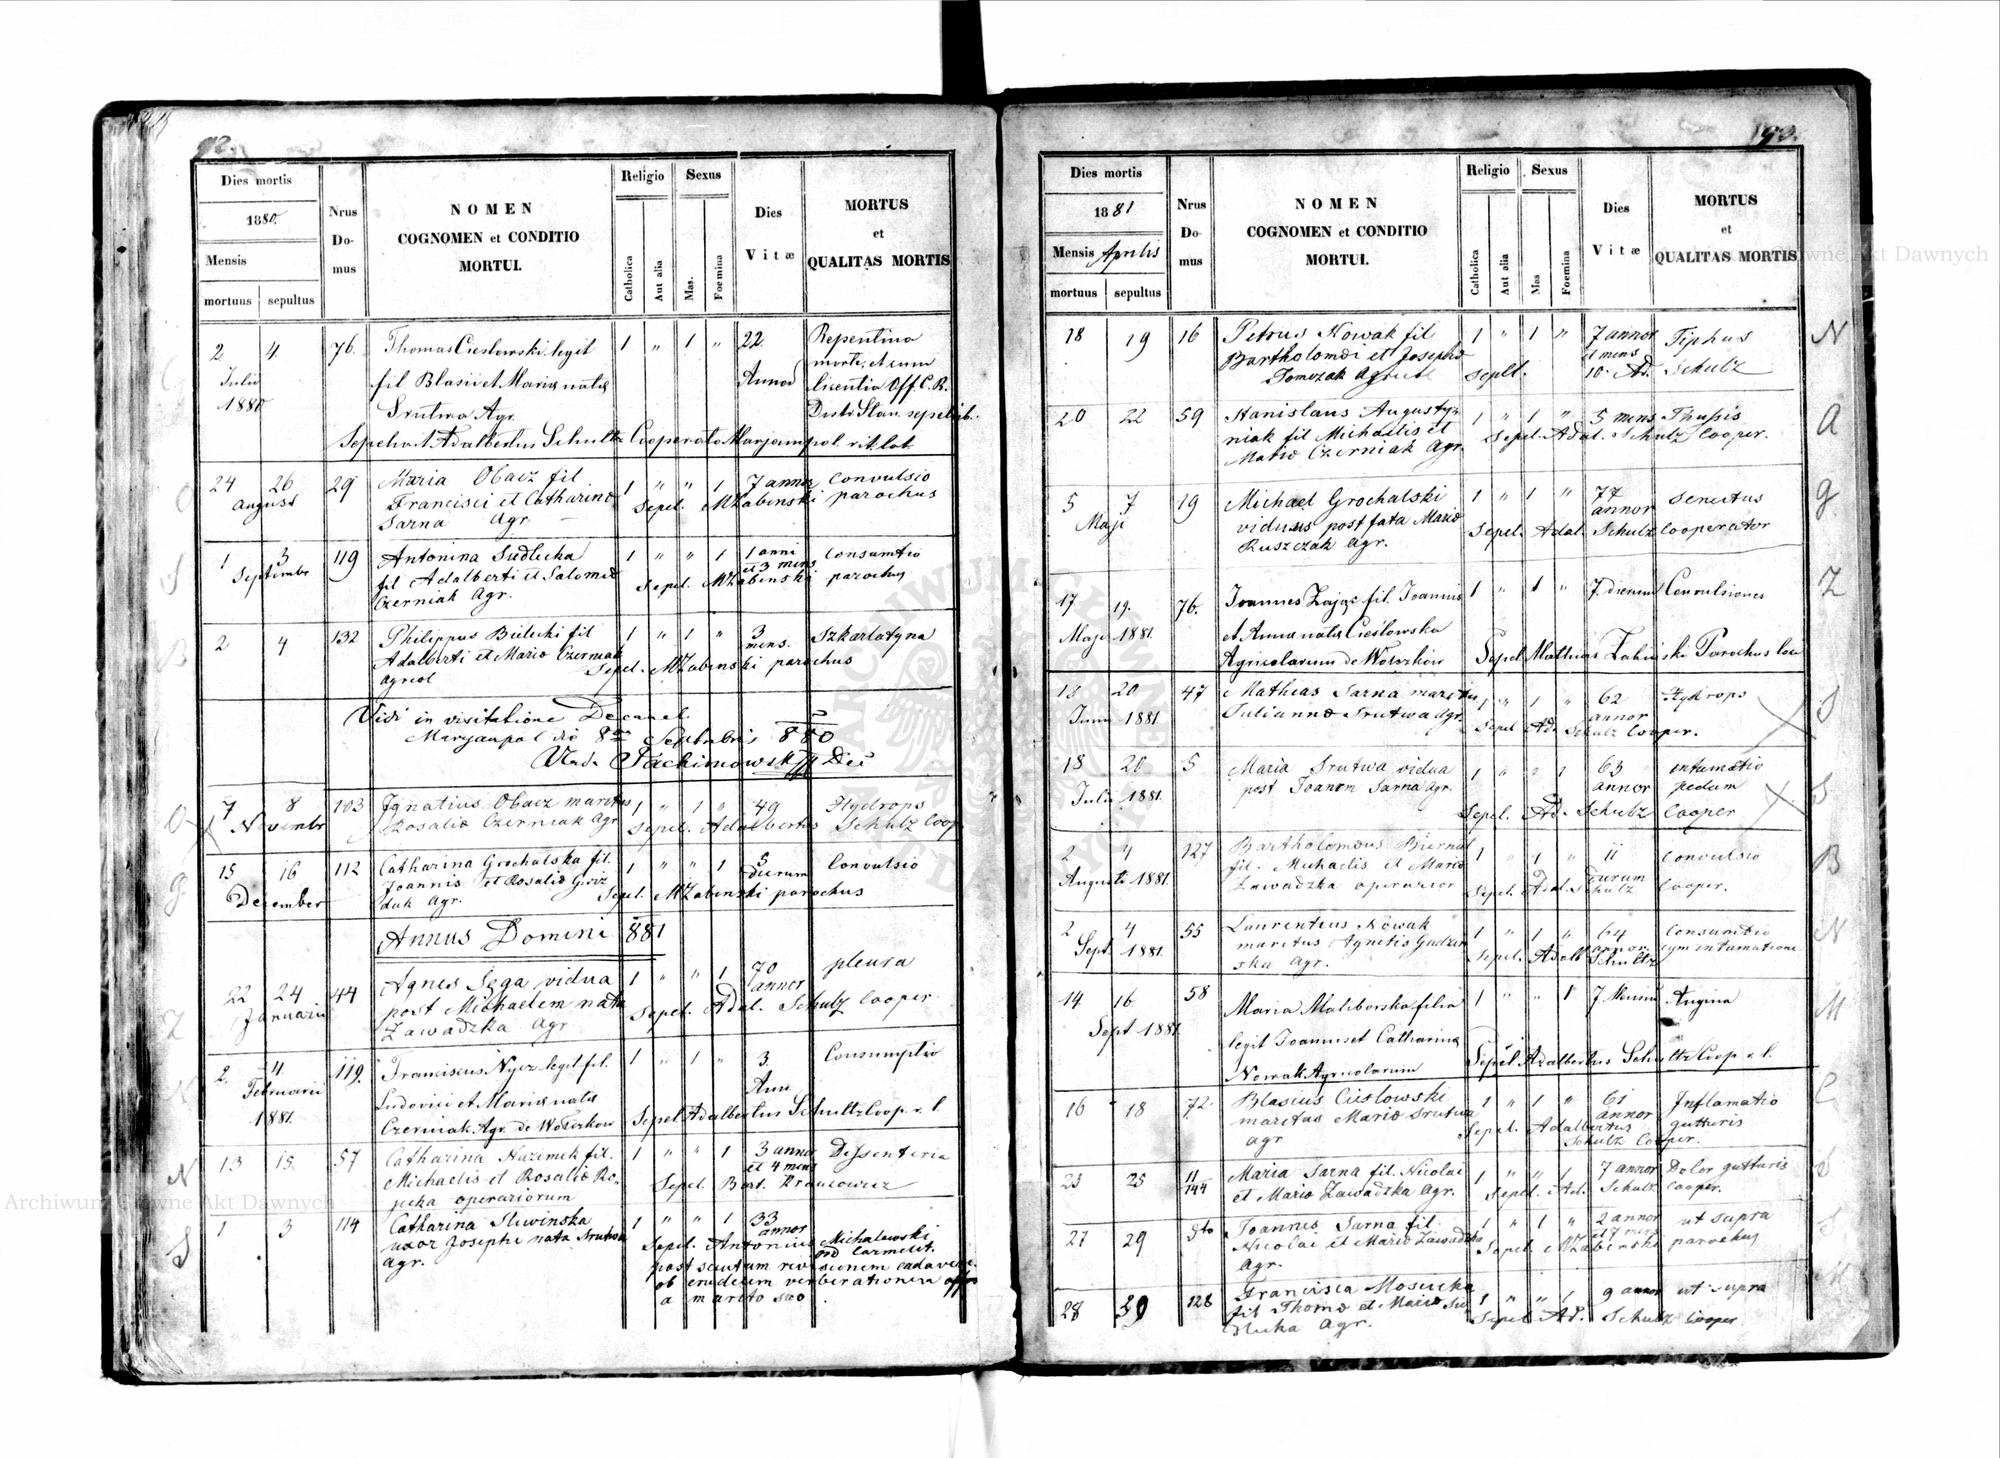 92.
Dies mortis
1880.
Mensis
mortuus sepultus
Nrus Do- mus
NOMEN
COGNOMEN et CONDITIO
MORTUI.
Religio
Catholica
Aut alia
Sexus
Mas.
Foemina
Dies
Vitæ
MORTUS
et
QUALITAS MORTIS
2 4. 76. Thomas Cieslowski legit 1 " 1 " 22. Repentina
Julii fil Blasii et Mariæ natæ Annor morte, et cum
1880 Srutwa Agr. licentia Off C. R.
Distr Stan. sepelib.
Sepelivit Adalbertus Schultz Cooperato Marjampol rit. lat.
24 26 29 Maria Obacz fil 1 " " 1 7 annor Convulsio
August Francisci et Catharinæ Sepel. MZabinski parochus
Sarna Agr.
1 3 119 Antonina Sudlecka 1 " " 1 1 anni Consumtio
Septembr fil Adalberti et Salomeæ et 3 mens
Czerniak Agr. Sepel. MZabinski parochus
2 4 132 Philippus Bielecki fil 1 " 1 " 3 Szkarlatyna
Adalberti et Mariæ Czerniak mens.
agricol Sepel. MZabinski parochus
Vidi in visitatione Decanal.
Maryampol die 8 Septbris 880
Jachimowski Dec
7 8 103 Ignatius Obacz maritus 1 " 1 " 49 Hydrops
Novembr Rosaliæ Czerniak Agr Sepel. Adalbertus Schulz Coop.
15 16 112 Catharina Grochalska fil. 1 " " 1 5 Convulsio
December Joannis et Rosaliæ dierum
duk Agr. Sepel. MZabinski parochus
Annus Domini 881
22 24 44 Agnes Sega vidua 1 " " 1 70 pleura
Januarii post Michaelem nata annor
Zawadzka Agr Sepel. Adal. Schulz Cooper.
2. 4. 119. Franciscus Nycz legit fil. 1 " 1 " 3. Consumptio
Februarii Ludovici et Mariæ natæ Ann.
1881. Czerniak Agr. de Wolczkow Sepel Adalbertus Schultz Coop. r. l.
13 15. 57 Catharina Nazimek fil. 1 " " 1 3 annor Dissenteria
Michaelis et Rosaliæ Ro- et 4 mens
jecka operariorum Sepel. Bart.
1 3 114 Catharina Sliwinska 1 " " 1 33
uxor Josephi nata Srutwa annor
Agr. Sepel. Antonius Michalewski
ord Carmelit.
post scutum revisionem cadaveris
ob crudelem verberationem
a marito suo
93.
Dies mortis
1881
Mensis Aprilis
mortuus sepultus
Nrus Do- mus
NOMEN
COGNOMEN et CONDITIO
MORTUI.
Religio
Catholica
Aut alia
Sexus
Mas
Foemina
Dies
Vitæ
MORTUS
et
QUALITAS MORTIS
18 19 16 Petrus Nowak fil 1 " 1 " 7 annor Tiphus N
Bartholomæi et Josephæ et mens
Tomczak Sepelt. 10. Ad. Schulz
20 22 59 Stanislaus Augusty- 1 " 1 " 5 mens Thussis A
niak fil Michaelis et Sepel. Adal. Schulz Cooper.
Mariæ Czerniak Agr.
5 7 19 Michael Grochalski 1 " 1 " 77 Senectus G
Maji viduus post fata Mariæ annor
Ruszczak Agr. Sepel. Adal. Schulz Cooperator
17 19. 76. Joannes Zając fil. Joannis 1 " 1 " 7. dierum Convulsiones Z
Maji 1881. et Annæ natæ Cieślowska
Agricolarum de Wolczków Sepel Mathias Zabinski Parochus loci
18 20 47 Mathias Sarna maritus 1 " 1 " 62 Hydrops S
Juni 1881 Juliannæ Srutwa Agr. annor
Sepel Ad. Schulz Cooper.
18 20 5 Maria Srutwa vidua 1 " " 1 63 intumatio S
Julii 1881. post Joanem Sarna Agr. annor pedum
Sepel. Ad. Schulz Cooper
2 4 127 Bartholomeus Biernat 1 " 1 " 11 Convulsio B
Augusti 1881. fil. Michaelis et Mariæ dierum
Zawadzka operarior Sepel. Adal Schulz Cooper.
2 4 55 Laurentius Nowak 1 " 1 " 64 Consumtio N
Sept. 1881. maritus Agnetis Gadzin annor. cum intumatione
ska Agr. Sepel. Adalb Schultz
14 16 58 Maria Maliborska filia 1 " " 1 7 Mensis Angina M
Sept 1881. legit Joannis et Catharinæ
Nowak Agricolarum Sepel Adalbertus Schultz Coop r. l.
16 18 72. Blasius Cieslowski 1 " 1 " 61 Inflamatio C
maritus Mariæ Srutwa annor gutturis
agr Sepel. Adalbertus Schulz Cooper.
23 25 11/144 Maria Sarna fil. Nicolai 1 " " 1 7 annor Dolor gutturis S
et Mariæ Zawadzka Agr. Sepel. Ad. Schulz Cooper.
27 29 dto Joannes Sarna fil. 1 " 1 " 2 annor ut supra S
Nicolai et Mariæ Zawadzka et 7 mens
Agr. Sepel. MZabinski parochus
28 29 128 Francisca Mosiecka 1 " " 1 9 annor ut supra M
fil Thomæ et Mariæ Su
dlecka Agr. Sepel Ad. Schulz Cooper
Archiwum Główne Akt Dawnych
Archiwum Główne Akt Dawnych
ARCHIWUM GŁÓWNE AKT DAWNYCH